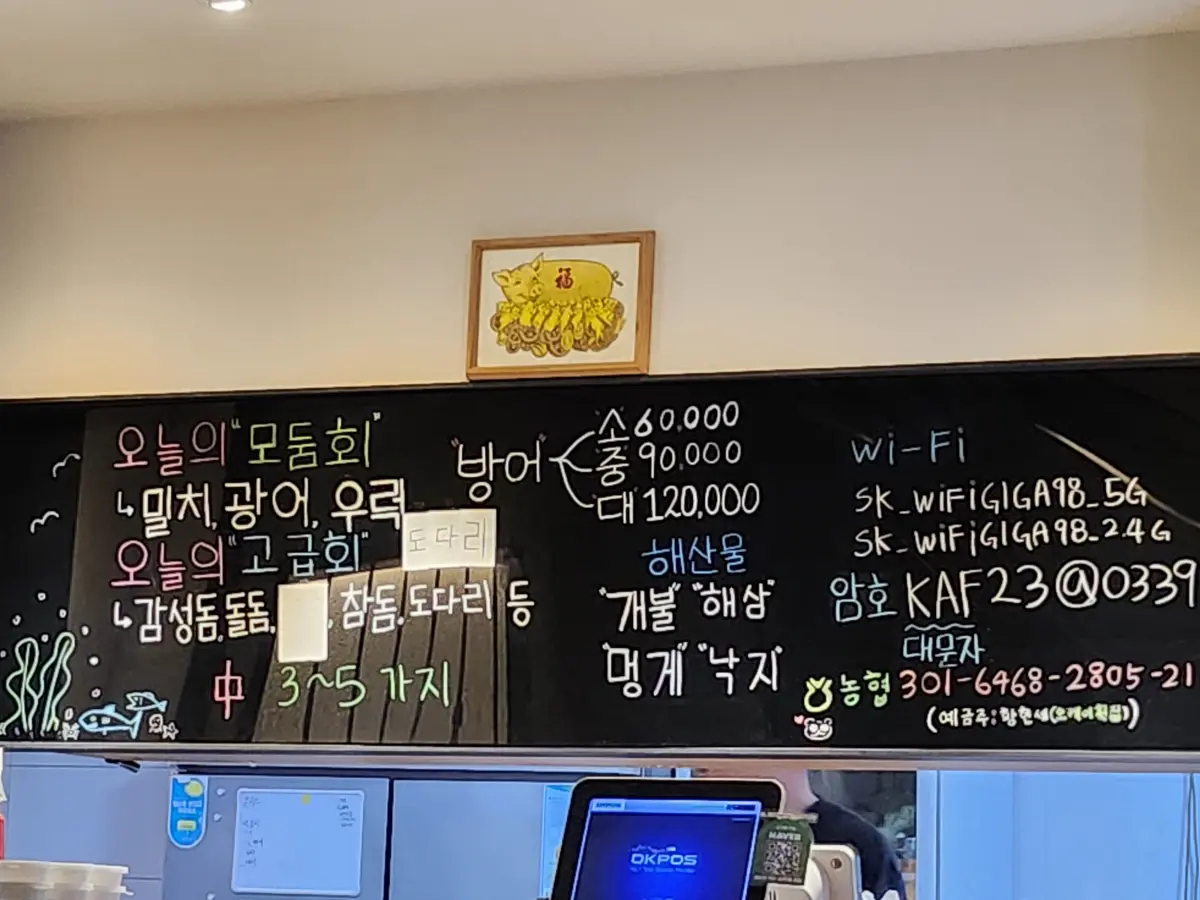 福
오늘의 "모둠회"
↳밀치, 광어, 우럭
도다리
오늘의 "고급회"
↳감성돔, 돌돔, , 참돔, 도다리 등
中 3~5 가지
"방어"
소 60,000
중 90,000
대 120,000
해산물
"개불" "해삼"
"멍게" "낙지"
Wi-Fi
SK_WiFiGIGA98_5G
SK_WiFiGIGA98_2.4G
암호 KAF23@0339
대문자
농협 301-6468-2805-21
(예금주: 황현세(오케이횟집))
OKPOS
NAVER